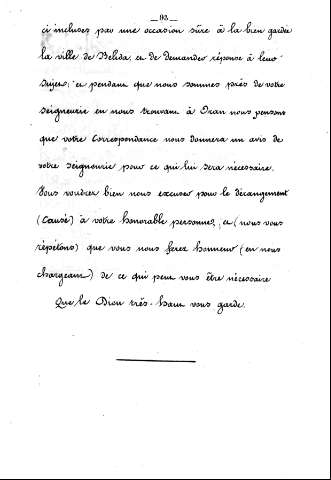 _ 113. _
ci incluses par une occasion sûre à la bien garder
la ville de Belida, et de demander réponse à leur
sujet; et pendant que nous sommes près de votre
seigneurie en nous trouvant à Oran nous pensons
que votre correspondance nous donnera un avis de
votre seigneurie pour ce qui lui sera nécessaire.
Vous voudrez bien nous excuser pour le dérangement
(causé) à votre honorable personne, et (nous vous
répétons) que vous nous ferez honneur (en nous
chargeant) de ce qui peut vous être nécessaire
Que le Dieu très-haut vous garde.